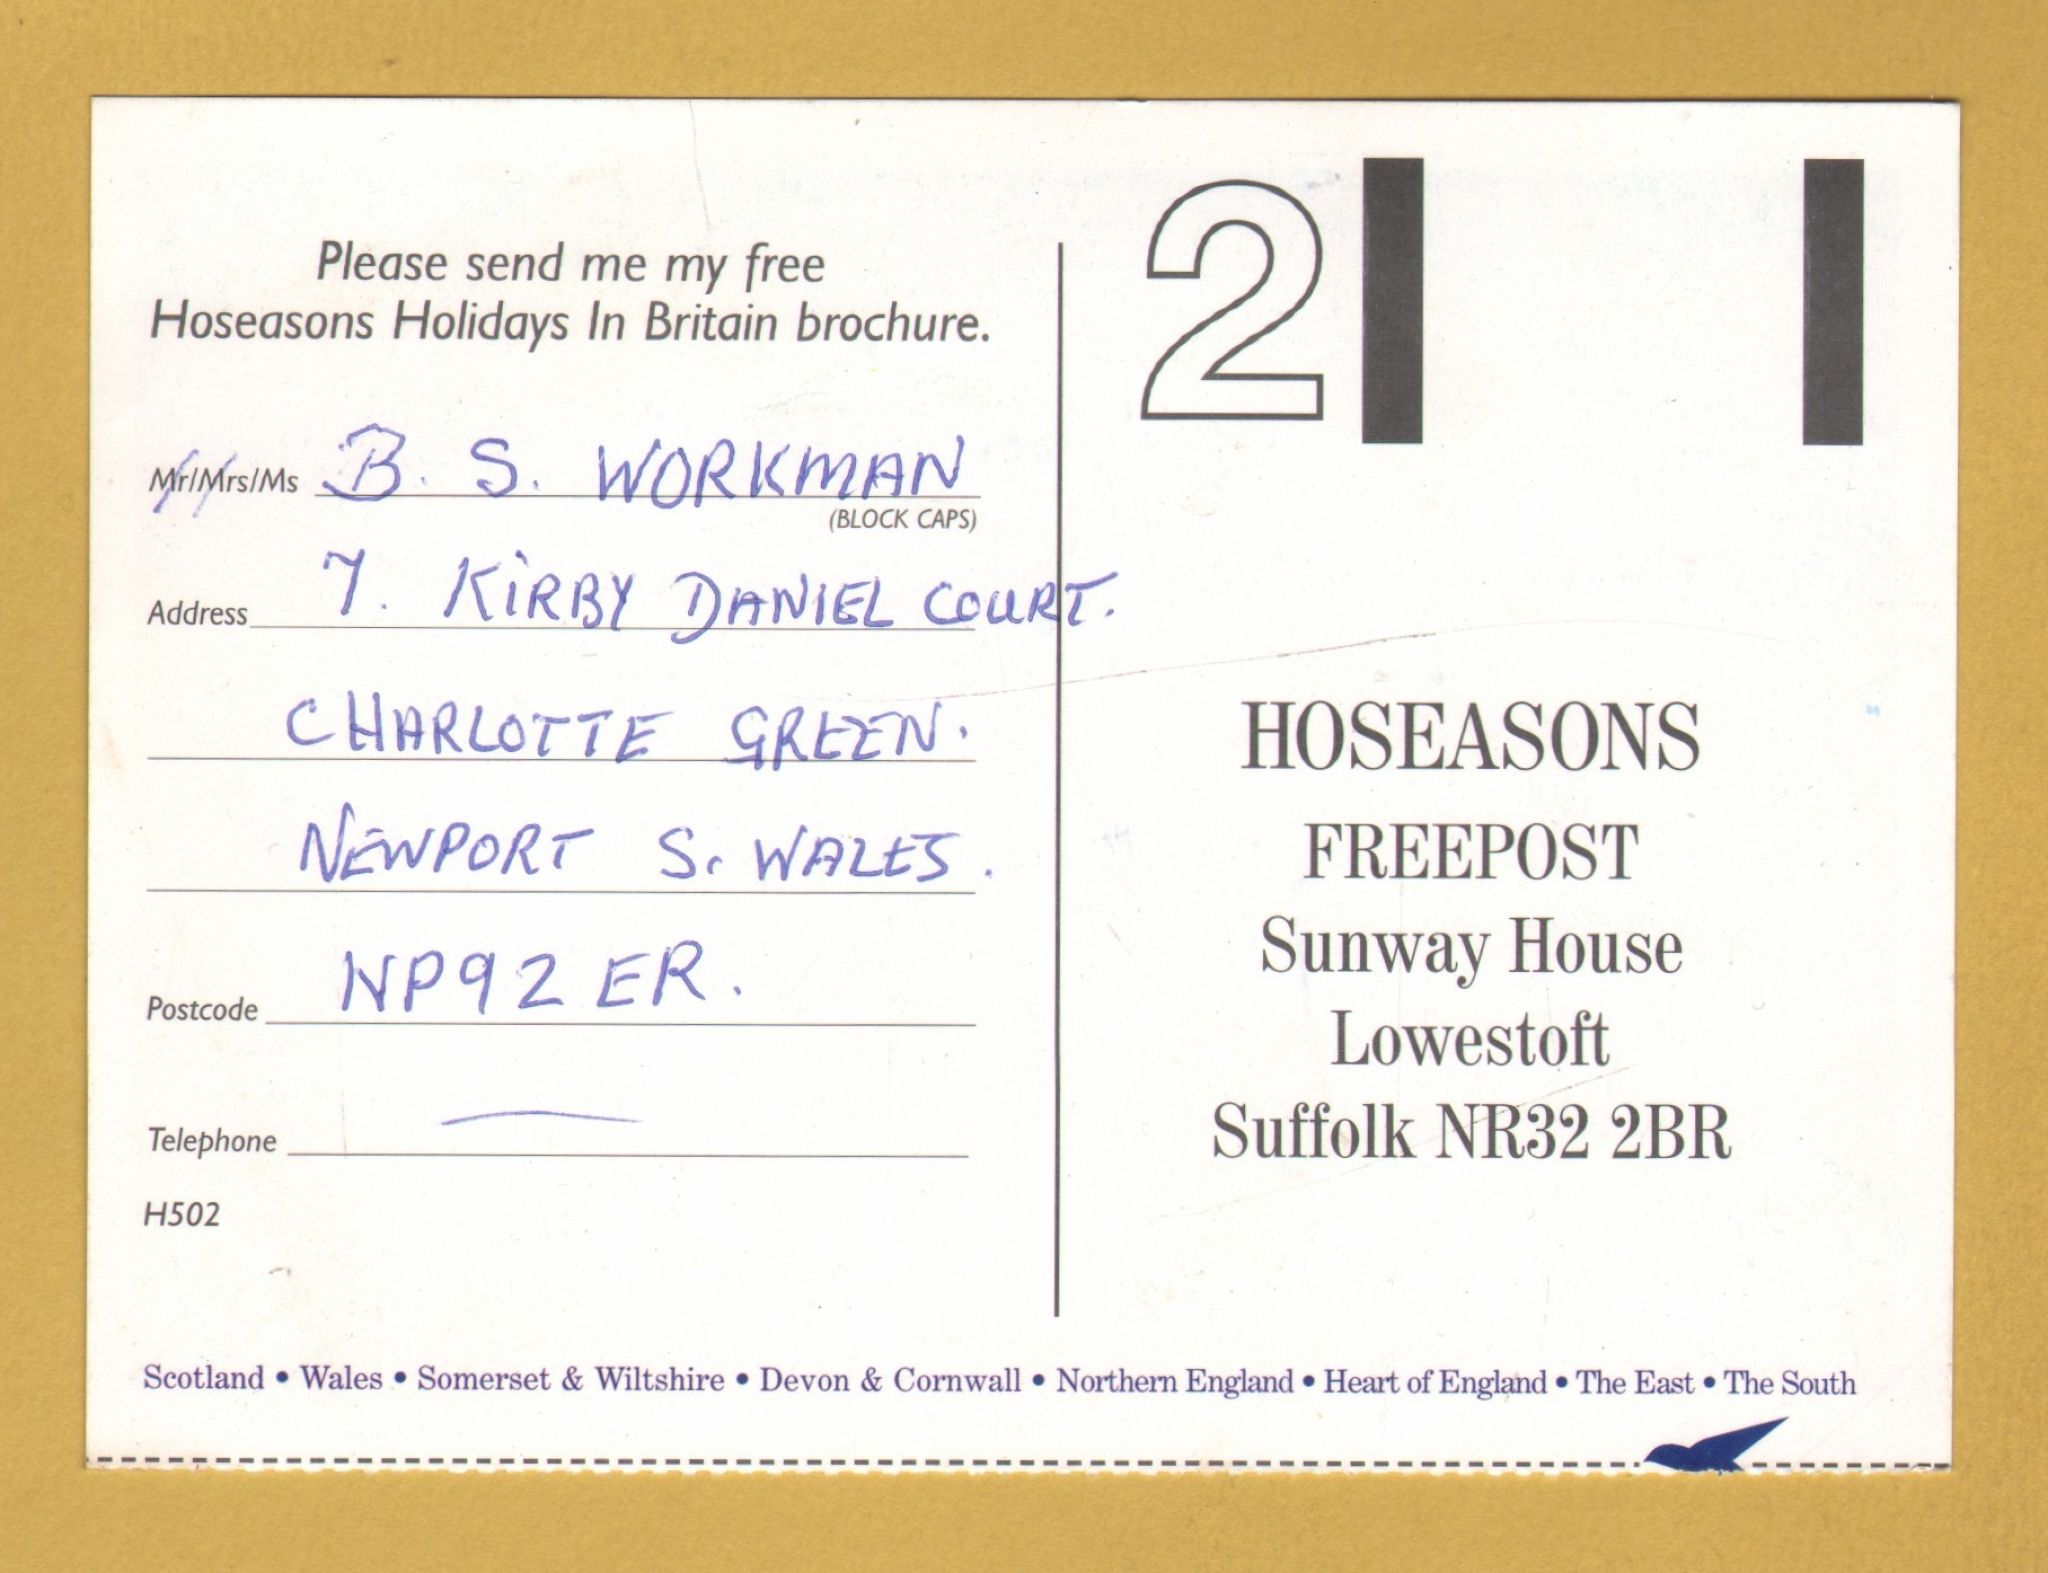 Please send me my free
Hoseasons Holidays In Britain brochure.
Mr/Mrs/Ms B. S. WORKMAN
(BLOCK CAPS)
Address 7. KIRBY DANIEL COURT.
CHARLOTTE GREEN.
NEWPORT S. WALES.
Postcode NP92ER.
Telephone —
H502
2
HOSEASONS
FREEPOST
Sunway House
Lowestoft
Suffolk NR32 2BR
Scotland • Wales • Somerset & Wiltshire • Devon & Cornwall • Northern England • Heart of England • The East • The South